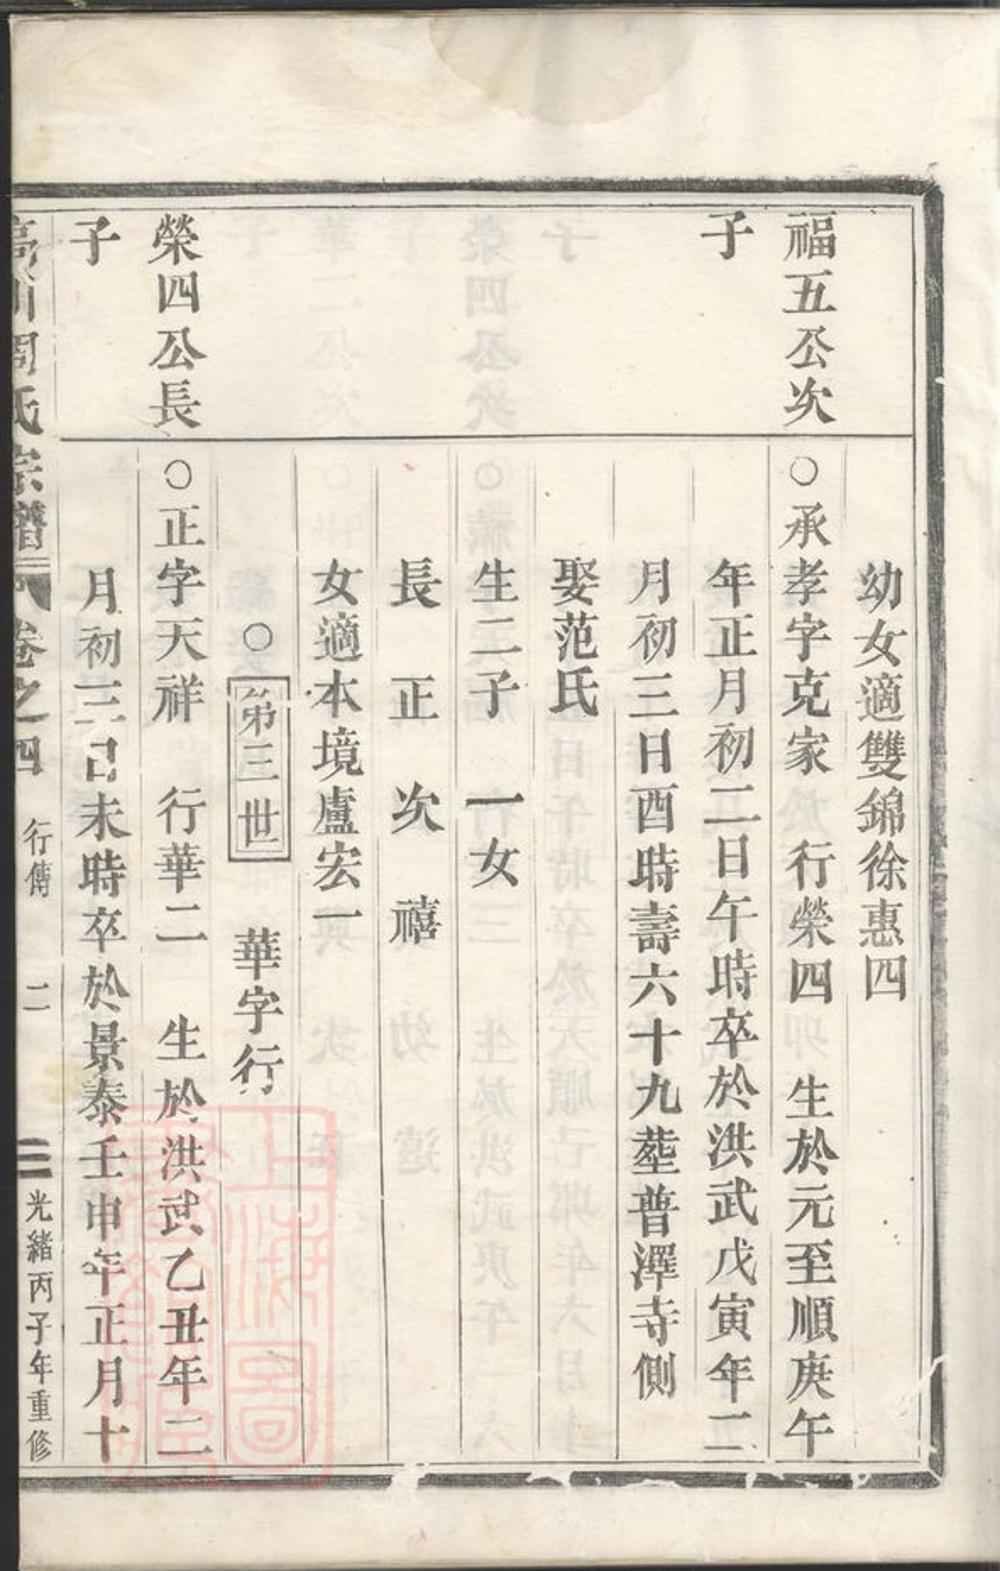 幼女適雙錦徐惠四
福五公次
○承孝字克家　行榮四　生於元至順庚午
子
年正月初二日午時卒於洪武戊寅年二
月初三日酉時壽六十九塟普澤寺側
娶范氏
生二子　一女
長　正　次　禧
女適本境盧宏一
○第三世　華字行
榮四公長
○正字天祥　行華二　生於洪武乙丑年二
子
月初三日未時卒於景泰壬申年正月十
川周氏宗譜　卷之四　行傳　二　三　光緒丙子年重修
上海圖書館藏